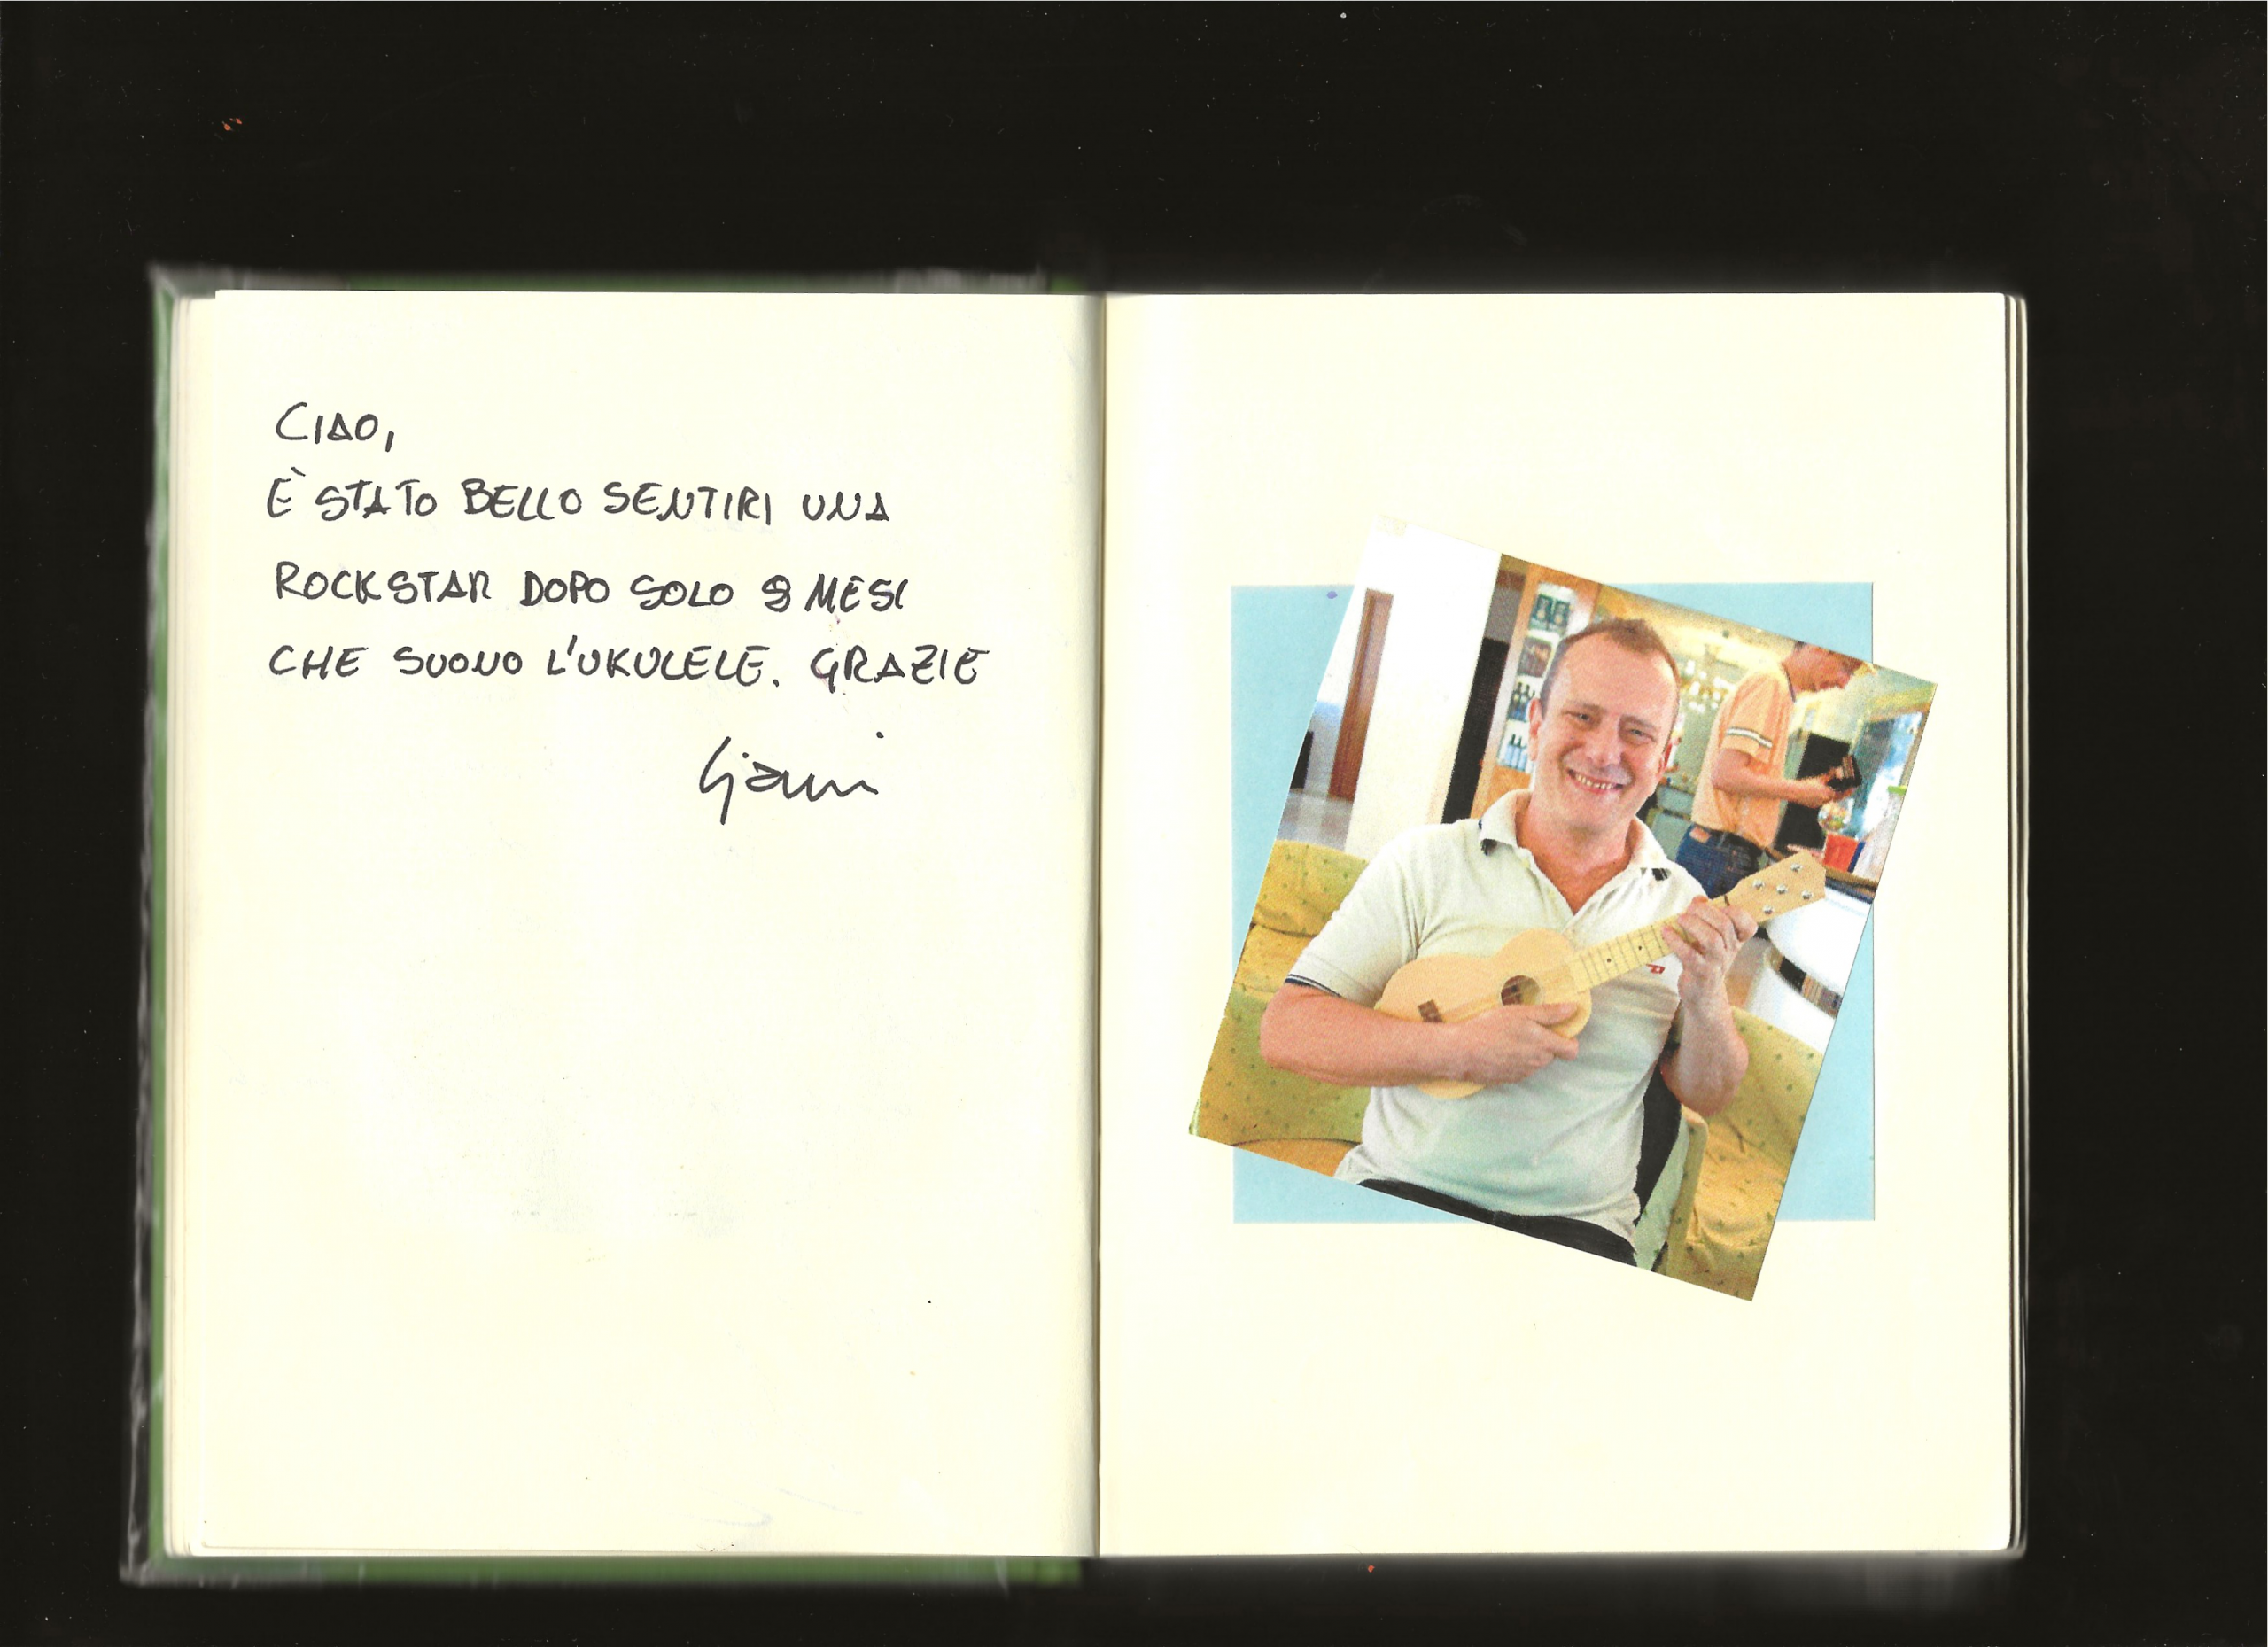 CIAO,
È STATO BELLO SENTIRI UNA
ROCKSTAR DOPO SOLO MESI
CHE SUONO L'UKULELE. GRAZIE
Gianni